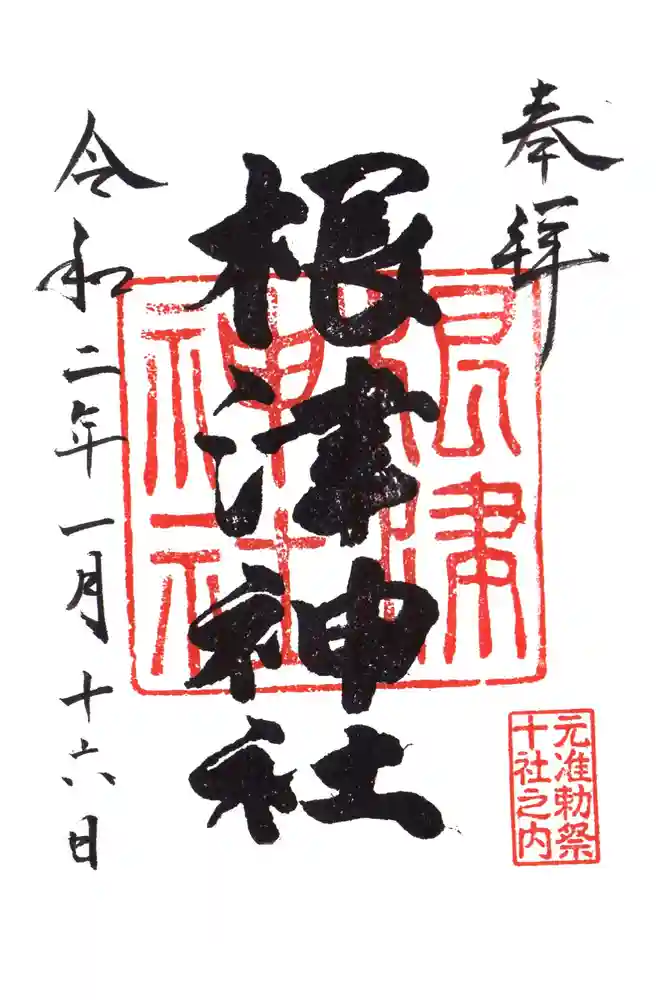 奉拝
元准勅祭
十社之内
根津神社
根津
神社
令和二年一月十六日